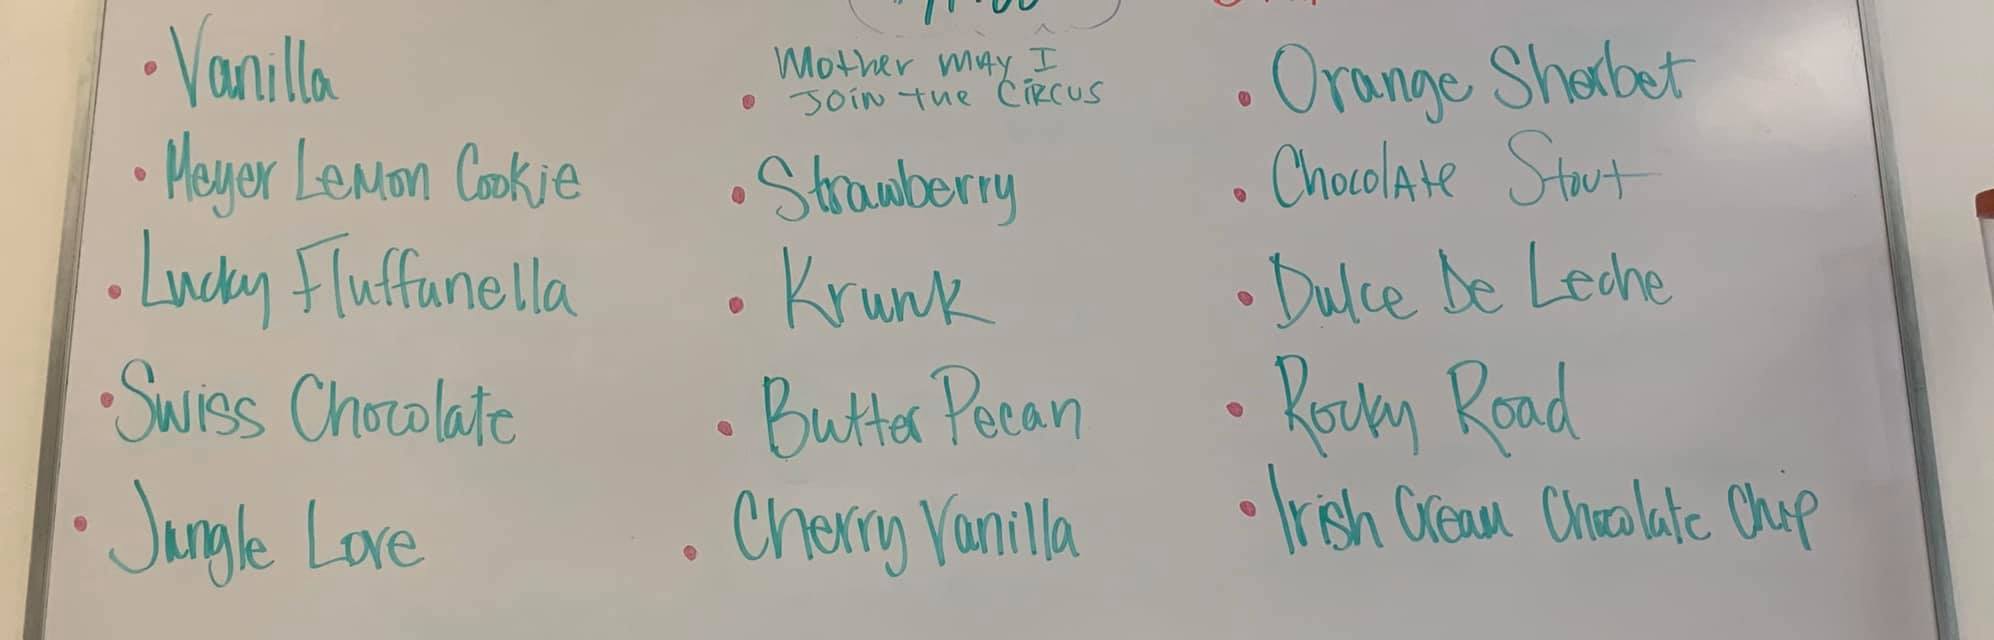 • Vanilla
• Meyer Lemon Cookie
• Lucky Fluffunella
• Swiss Chocolate
• Jungle Love
Mother may I
• Join the Circus
• Strawberry
• Krunk
• Butter Pecan
• Cherry Vanilla
• Orange Sherbet
• Chocolate Stout
• Dulce De Leche
• Rocky Road
• Irish Cream Chocolate Chip